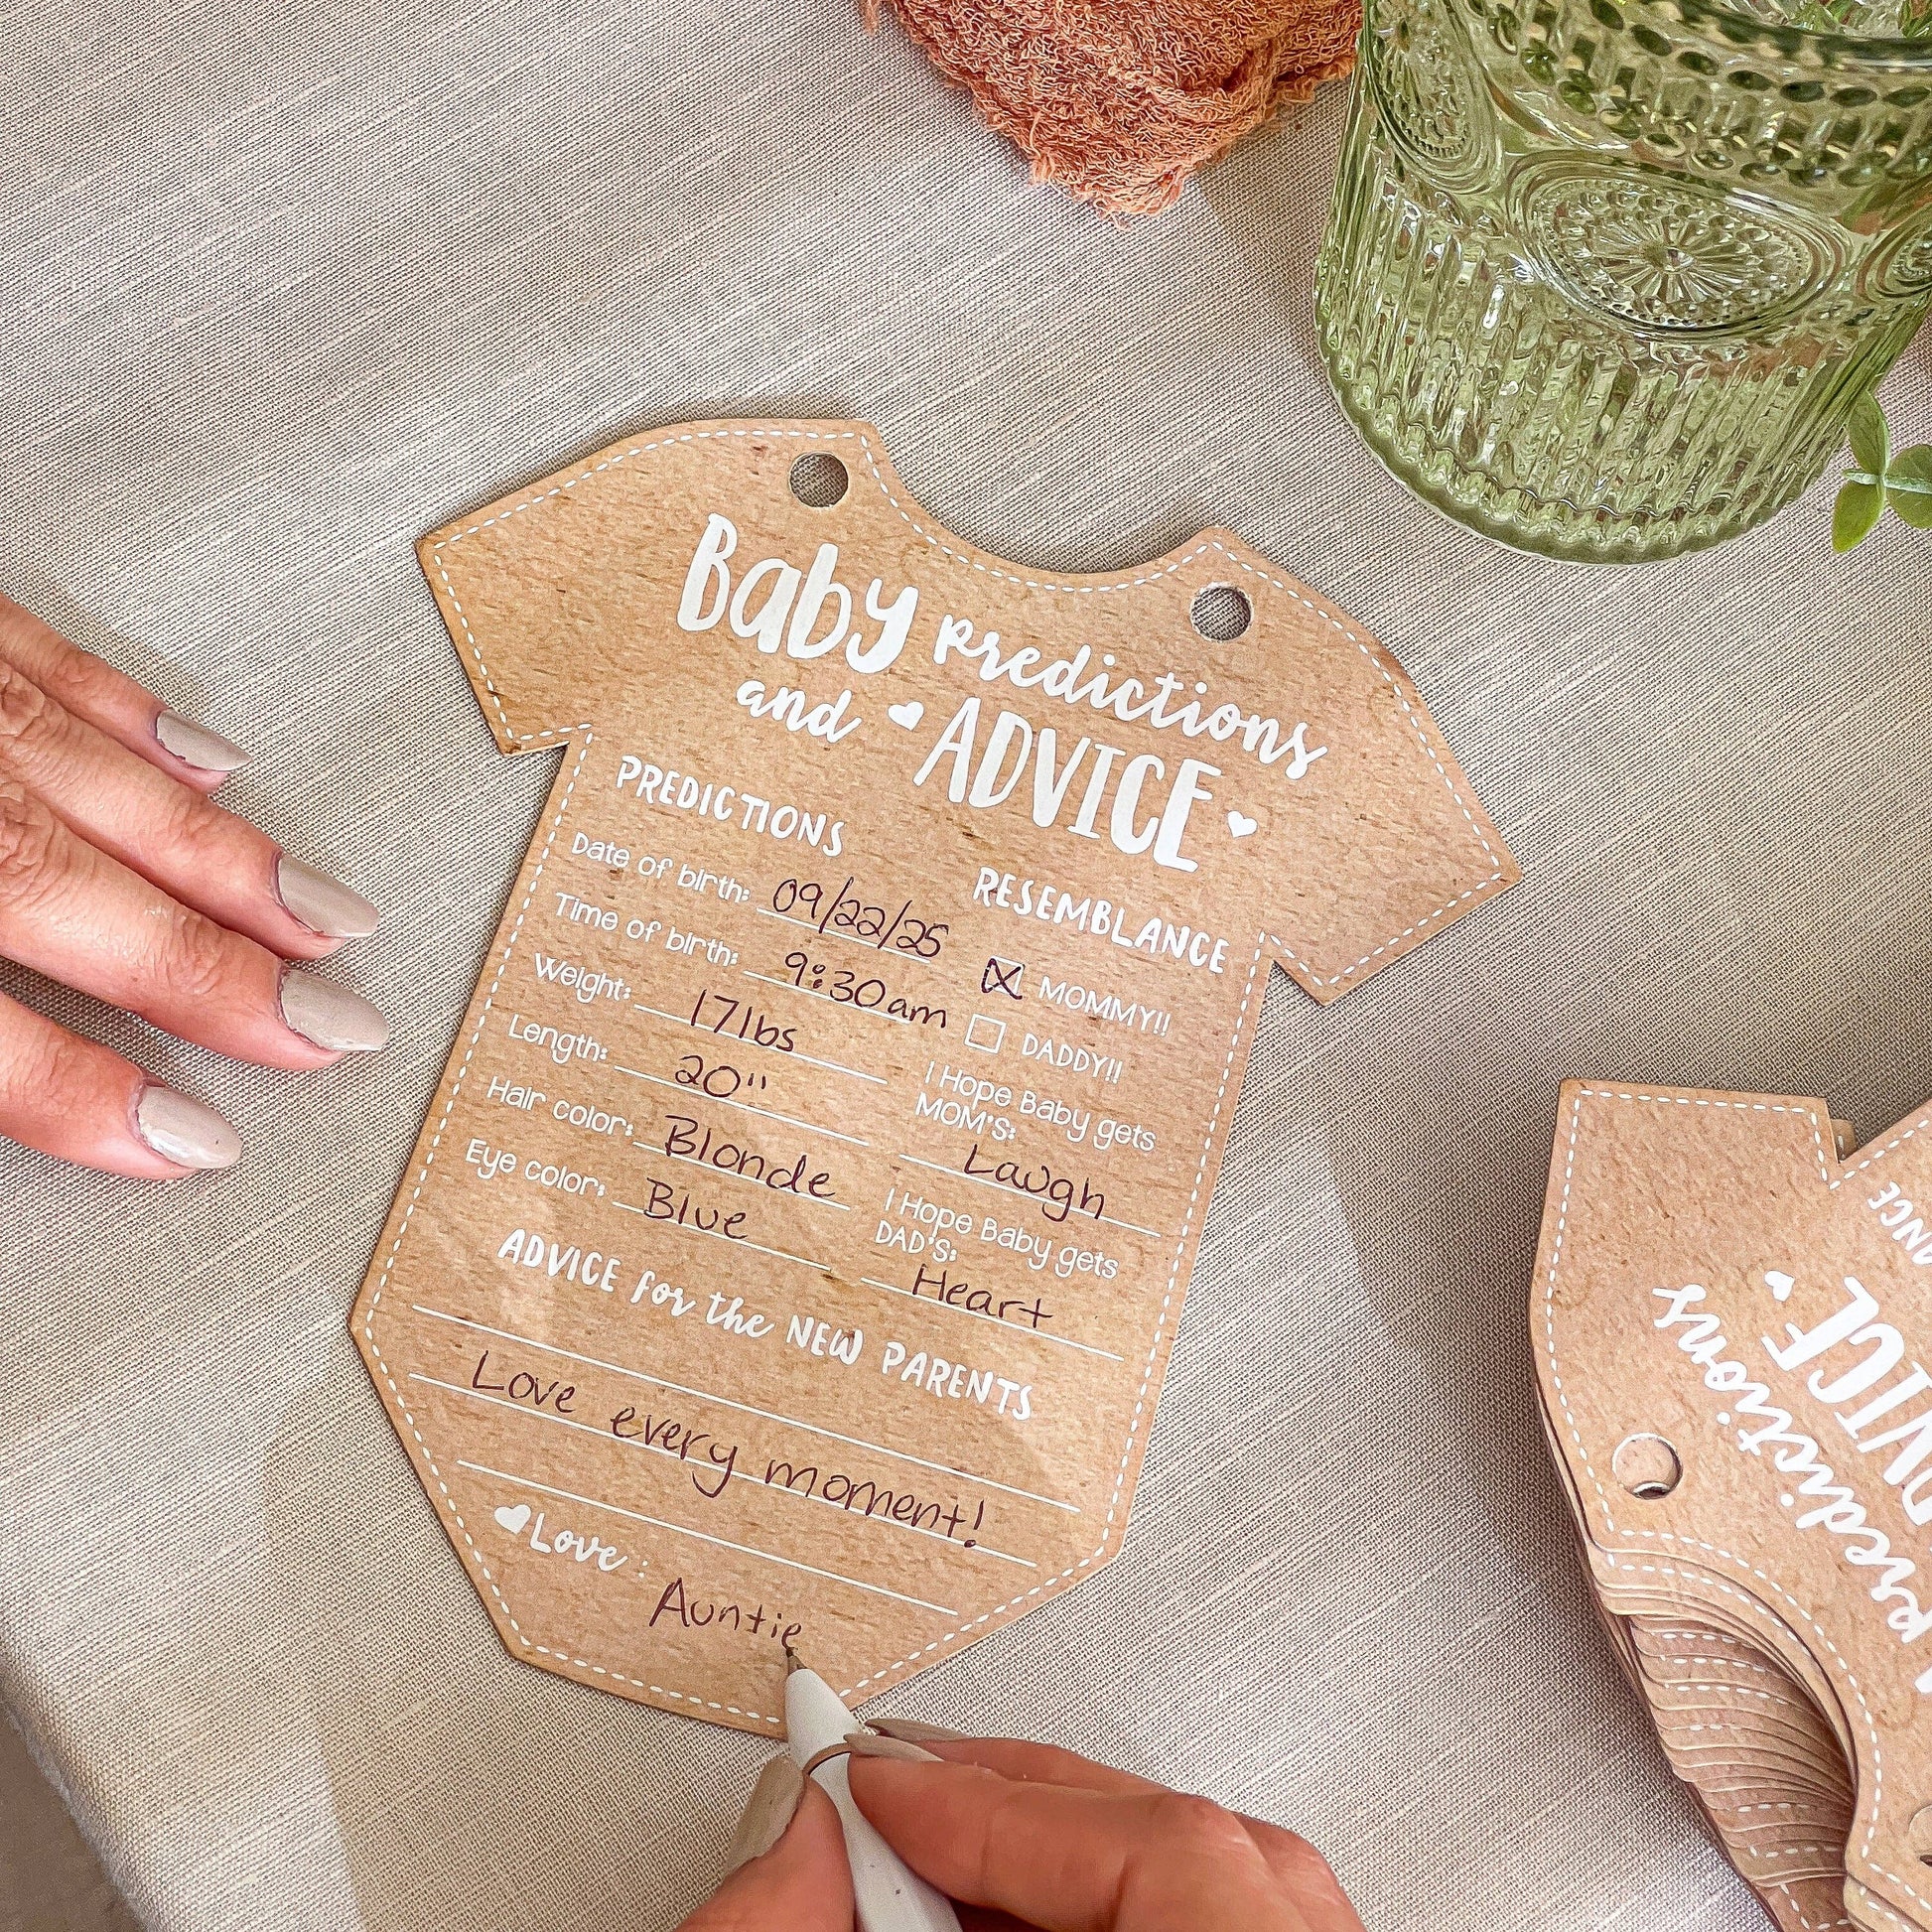 Baby Predictions
and ADVICE
PREDICTIONS
Date of birth: 09/22/25
Time of birth: 9:30am
Weight: 17lbs
Length: 20"
Hair color: Blonde
Eye color: Blue
RESEMBLANCE
MOMMY!!
DADDY!!
I Hope Baby gets
MOM'S:
Laugh
I Hope Baby gets
DAD'S:
Heart
ADVICE for the NEW PARENTS
Love every moment!
Love:
Auntie
redictions
VICE
NCE